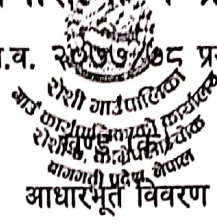 .व. २०७७/७८ प्र
रोशी गाउँपालिका
गाउँ कार्यपालिकाको कार्यालय
बागमती प्रदेश, नेपाल
आधारभूत विवरण